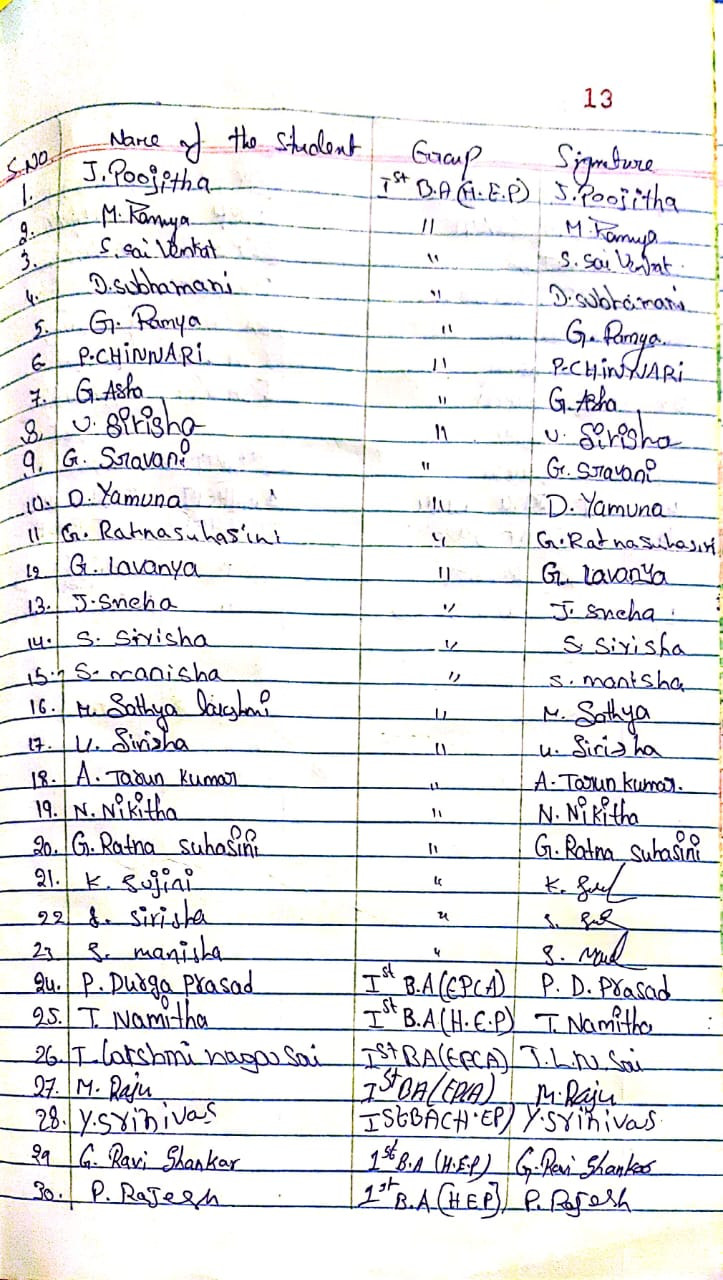 13
S.NO Name of the Student Group Signature
1. J. Poojitha Ist B.A (H.E.P) J. Poojitha
2. M. Ramya " M. Ramya
3. S. Sai Venkat " S. Sai Venkat
4. D. subhamani " D. subhamani
5. G. Ramya " G. Ramya.
6 P. CHINNARI " P. CHINNARI
7. G. Asha " G. Asha
8. U. Sirisha " U. Sirisha
9. G. Sravani " G. Sravani
10. D. Yamuna " D. Yamuna
11 G. Ratnasuhasini " G. Ratnasuhasini
12 G. Lavanya " G. Lavanya
13. J. Sneha " J. Sneha
14. S. Sirisha " S Sirisha
15. S. manisha " S. manisha
16. M. Sathya lakshmi " M. Sathya
17. U. Sirisha " U. Sirisha
18. A. Tarun Kumar " A. Tarun Kumar.
19. N. Nikitha " N. Nikitha
20. G. Ratna suhasini " G. Ratna suhasini
21. K. Sujini " K.
22 S. Sirisha " S.
23 S. manisha " S.
24. P. Durga Prasad Ist B.A (EPCA) P. D. Prasad
25. T. Namitha Ist B.A (H.E.P) T. Namitha
26. T. Lakshmi naga Sai Ist BA (EPCA) T. L. N. Sai
27. M. Raju Ist BA (EPCA) M. Raju
28. Y. Srinivas Ist BA (H.EP) Y. Srinivas
29 G. Ravi Shankar 1st B.A (H.E.P) G. Ravi Shankar
30. P. Rajesh 1st B.A (HEP) P. Rajesh